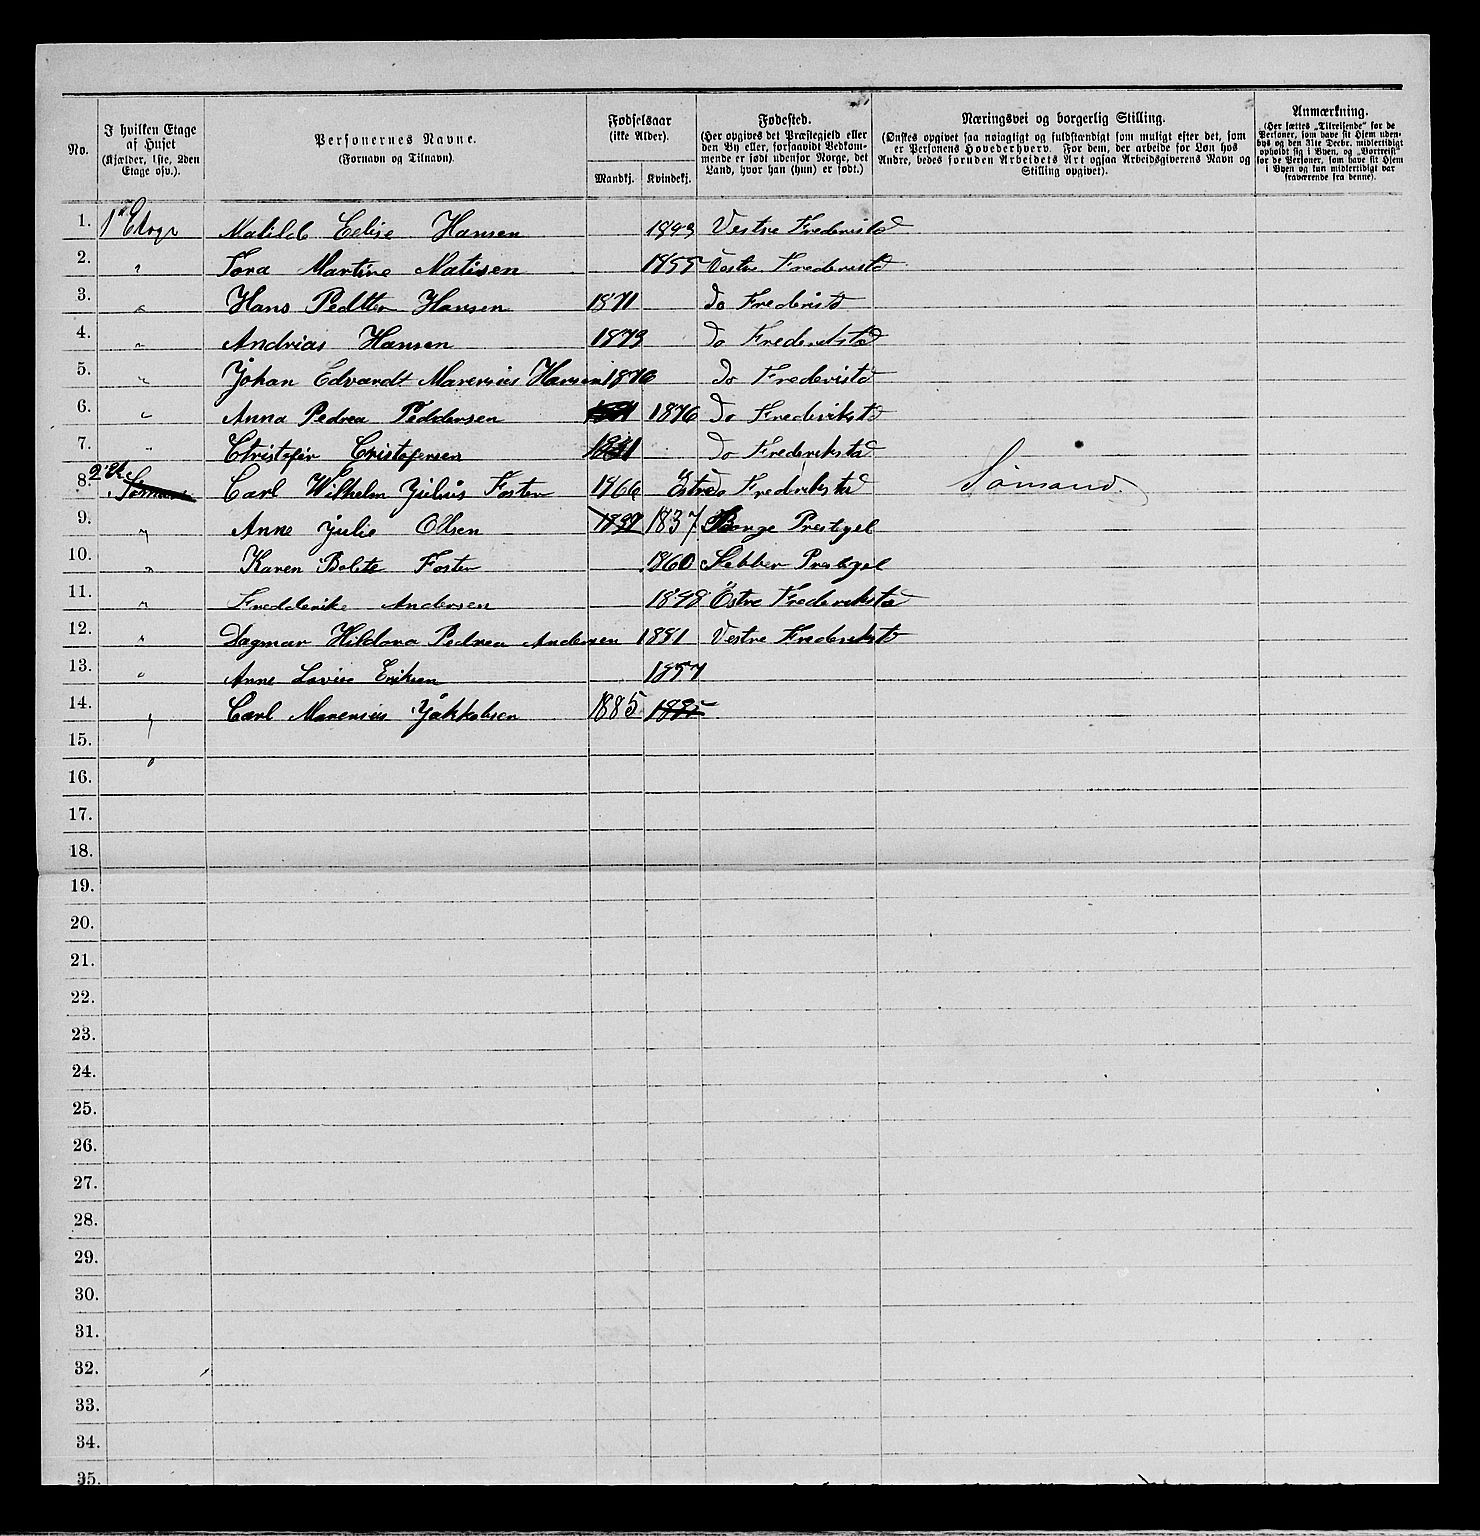 No.
I hvilken Etage af Huset (Kjælder, 1ste, 2den Etage osv.).
Personernes Navne. (Fornavn og Tilnavn)
Fødselsaar (ikke Alder). Mandkj. Kvindekj.
Fødested. (Her opgives det Præstegjeld eller den By eller, forsaavidt Vedkommende er født udenfor Norge, det Land, hvor han (hun) er født.)
Næringsvei og borgerlig Stilling. (Ønskes opgivet saa nøiagtigt og fuldstændigt som muligt efter det, som er Personens Hovederhverv. For dem, der arbeide for Løn hos Andre, bedes foruden Arbeidets Art ogsaa Arbeidsgiverens Navn og Stilling opgivet).
Anmærkning. (Her sættes „Tilreisende“ for de Personer, som have sit Hjem udenbys og den 31te Decbr. midlertidigt opholdt sig i Byen, og „Bortreist“ for de Personer, som have sit Hjem i Byen og kun midlertidigt var fraværende fra denne).
1. 1ª Etage Matilde Eelise Hansen 1843 Vestre Frederistd
2. " Tora Martine Matisen 1855 Vestre Frederistd
3. " Hans Pedtter Hansen 1871 do Frederistd
4. " Andrias Hansen 1873 do Frederikstd
5. " Johan Edvardt Marensius Hansen 1876 do Frederistd
6. " Anna Pedrea Peddersen 1876 do Frederikstd
7. " Christofer Cristofersen 1881 do Frederikstd
8. 2 Et Carl Wilhelm Julius Foster 1866 Östre do Frederikstd Sömand.
9. " Anne Julie Olsen 1837 1837 Prestegel
10. " Karen Bolete Foster 1860 Prestegel
11. " Fredderike Andersen 1848 Östre Frederikstd
12. " Dagmar Hildora Pedrea Andersen 1881 Vestre Frederikstd
13. " Anne Lovise Eriksen 1857
14. " Carl Marensius Jakkobsen 1885 1885
15. "
16.
17.
18.
19.
20.
21.
22.
23.
24.
25.
26.
27.
28.
29.
30.
31.
32.
33.
34.
35.